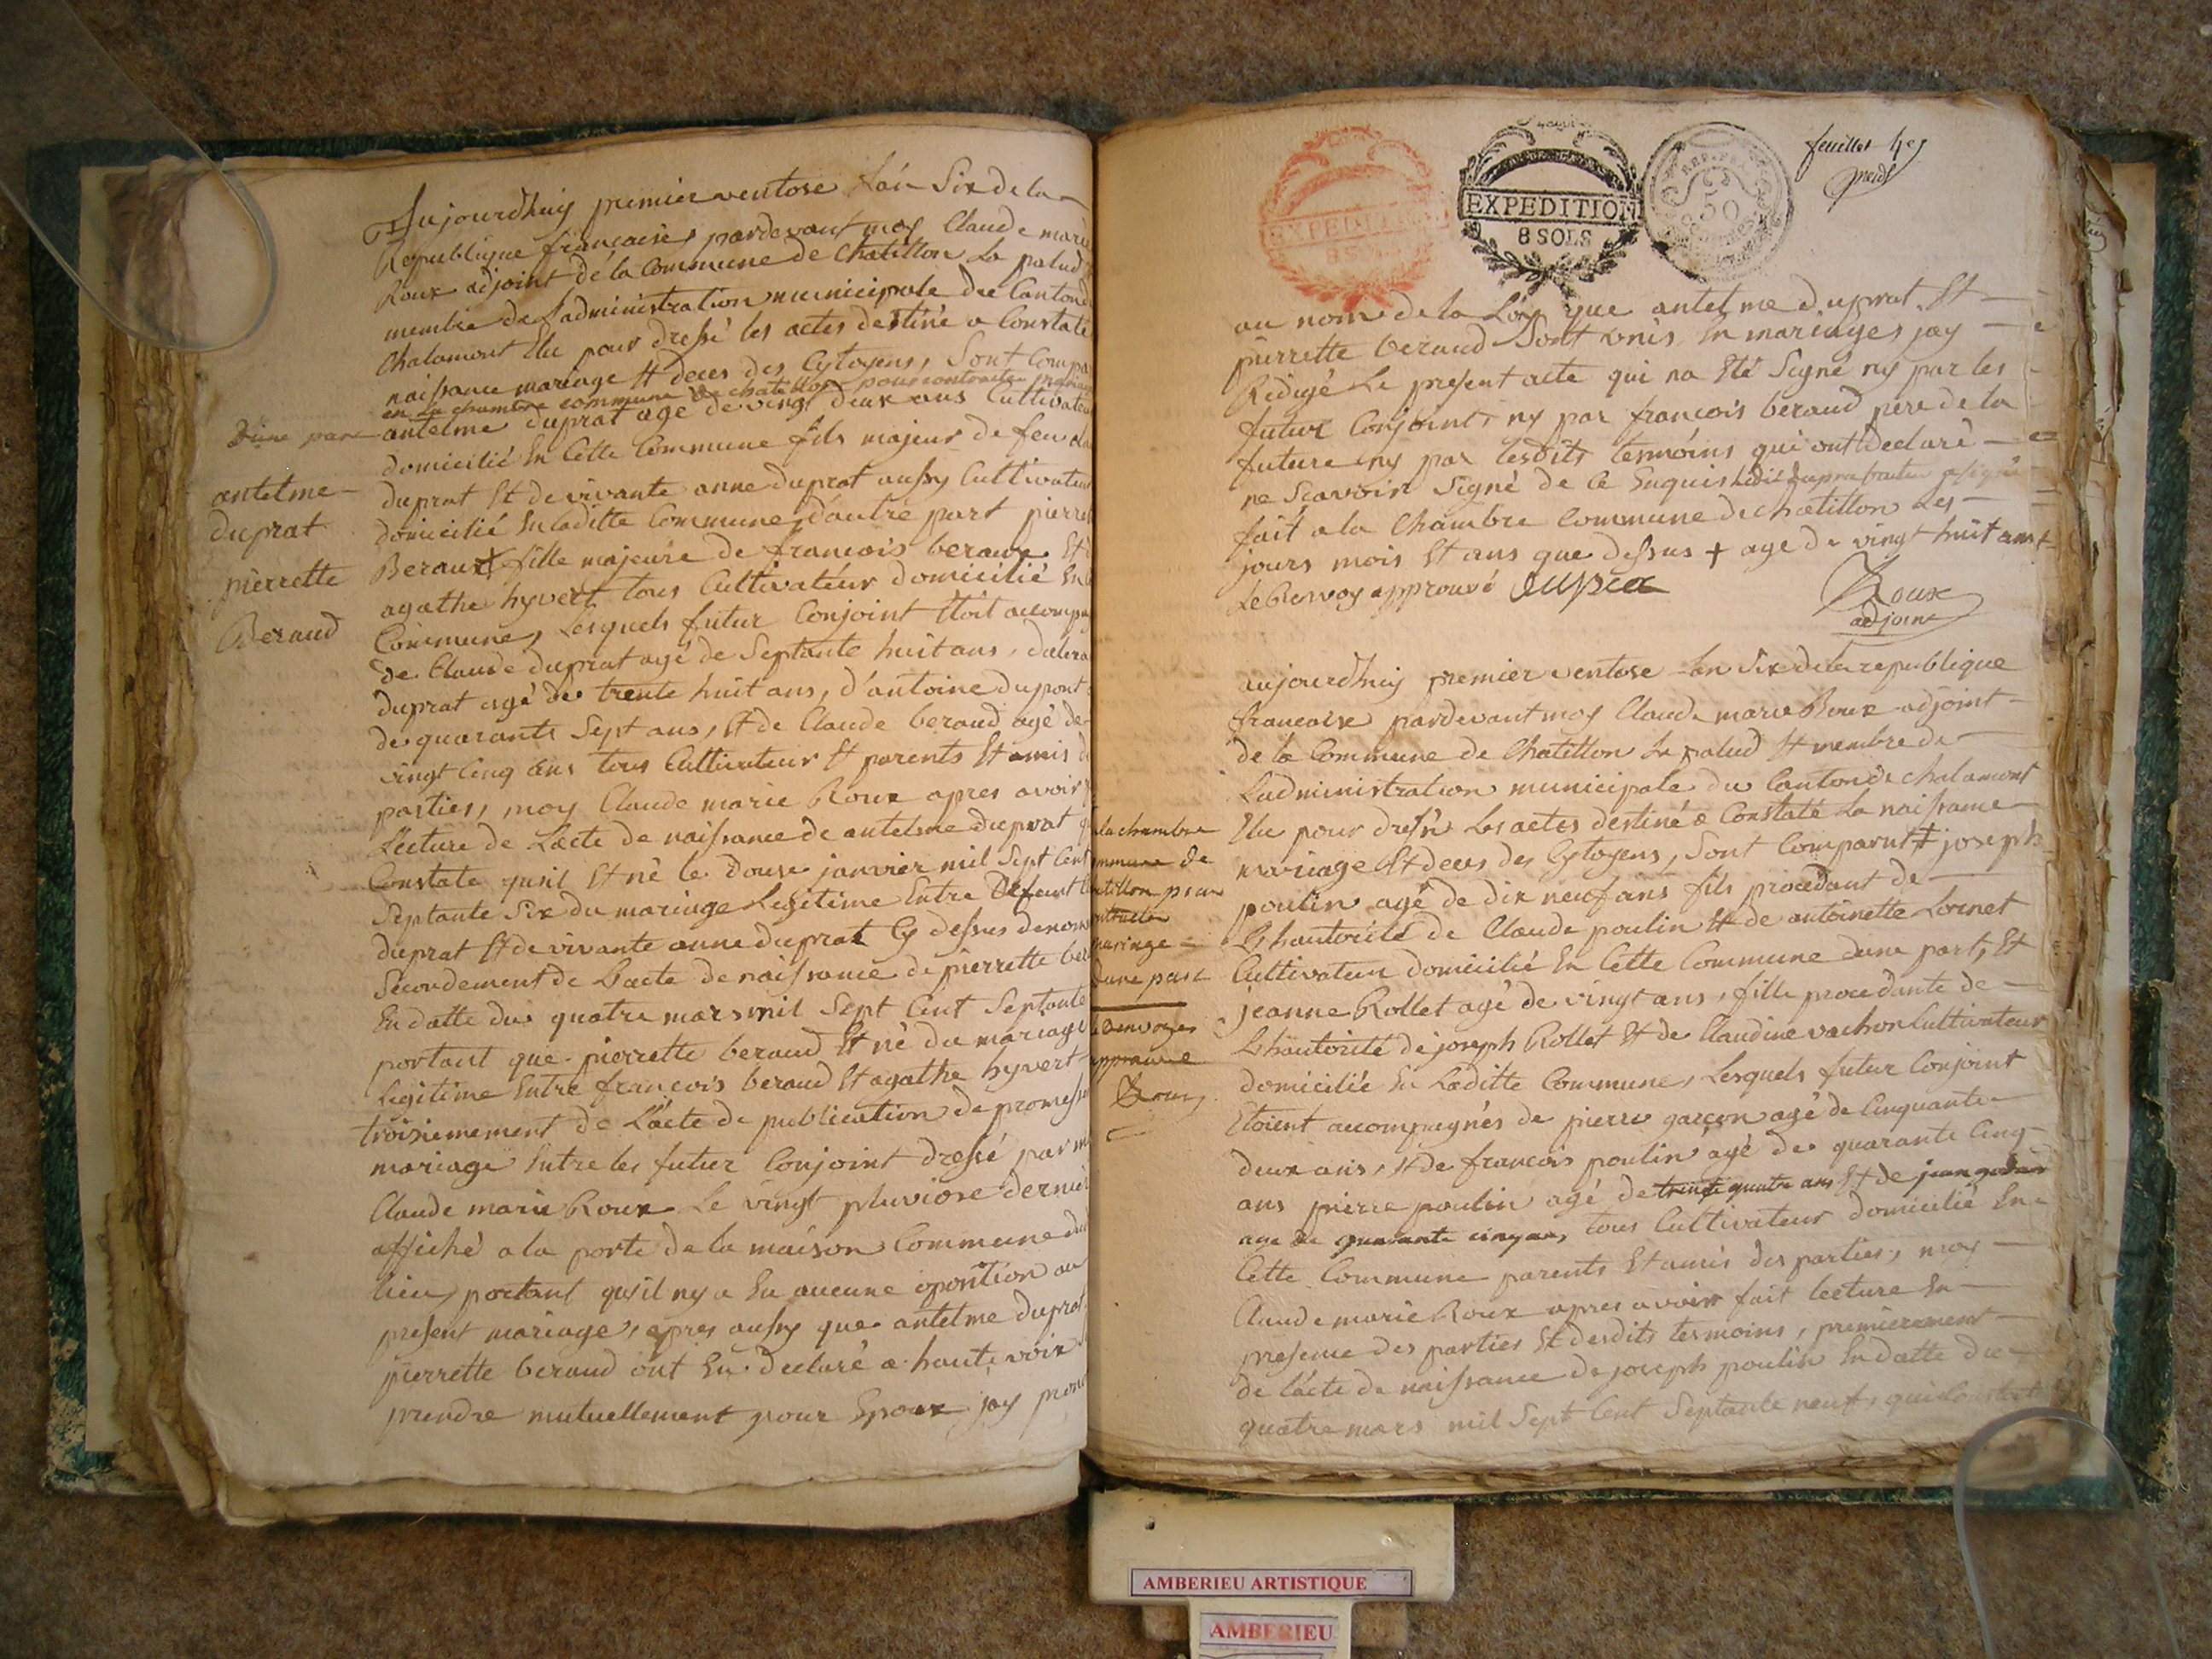 Aujourdhuy premier ventose Lan Six de la
Republique francaise, pardevant moy Claude marie
Roux adjoint de la Commune de Chatillon La palud
membre de Ladministration municipale du Canton de
Chalamont Elu pour dressé les actes destiné a Constaté
naissance mariage Et deces des Cytoyens, Sont Compa
en la chambre commune de chatillon pour contracter mariage
d'une part antelme duprat agé de vingt deux ans Cultivateur
domicilié En Cette Commune fils majeur de feu
antelme
duprat
pierrette
Beraud
duprat Et de vivante anne duprat aussy Cultivateur
domicilié En laditte Commune, d'autre part pierret
Beraud + fille majeure de francois beraud Et
agathe hyvert tous Cultivateur domicilié En
Commune, Lesquels futur Conjoint Etoit accompa
de Claude duprat agé de Septante huit ans,
duprat agé de trente huit ans, d'antoine dupont
de quarante Sept ans, Et de Claude beraud agé de
vingt Cinq ans tous Cultivateur Et parents Et amis d
parties, moy Claude marie Roux apres avoir
Lecture de Lacte de naissance de antelme duprat q
Constate qu'il Et né le douze janvier mil Sept Cent
Septante Six du mariage Legitime Entre Deffunt
duprat Et de vivante anne duprat Cy dessus denom
Secondement de Lacte de naissance de pierrette ber
En datte du quatre mars mil Sept Cent Septante
portant que pierrette beraud Et né du mariage
Legitime Entre francois beraud Et agathe hyvert
troisiemement de L'acte de publication de promesse
mariage Entre les futur Conjoint dressé par m
Claude marie Roux Le vingt pluviose dernier
affiché a la porte de la maison Commune du
lieu, portant qu'il ny a Eu aucune oposition au
present mariage, apres aussy que antelme duprat
pierrette beraud ont Eu declaré a haute voix
prendre mutuellement pour Epoux jay prono
EXPEDITION
8 SOLS
EXPEDITION
8 SOLS
REP. FRA
50
feuillet
au nom de la Loy que antelme duprat Et
pierrette beraud Sont unis En mariages jay
Redigé Le present acte qui na Eté Signé ny par les
futur Conjoint, ny par francois beraud pere de la
future ny par lesdits temoins qui ont declaré
ne Scavoir Signé de Ce Enquis
fait a la Chambre Commune de chatillon Les
jours mois Et ans que dessus + age de vingt huit ans +
Le Renvoy approuvé duprat
Roux
adjoint
aujourdhuy premier ventose Lan Six de la republique
francaise pardevant moy Claude marie Roux adjoint
de la Commune de Chatillon La palud Et membre de
Ladministration municipale du Canton de chalamont
Elu pour dressé Les actes destiné a Constaté La naissance
mariage Et deces des Cytoyens, Sont Comparut + joseph
a la chambre
commune de
chatillon pour
contracter
mariage
dune part
Renvoyer
approuvé
Roux
poulin agé de dix neuf ans fils procedant de
Lhautorité de Claude poulin Et de antoinette Lornet
Cultivateur domicilié En Cette Commune dune part, Et
jeanne Rollet agé de vingt ans, fille procedante de
Lhautorité de joseph Rollet Et de Claudine vachon Cultivateur
domiciliée En Laditte Commune, Lesquels futur Conjoint
Etoient accompagnés de pierre garçon agé de Cinquante
deux ans, Et de francois poulin agé de quarante Cinq
ans pierre poulin agé de trente quatre ans Et de jean
age de quarante cinq ans, tous Cultivateur domicilié En
Cette Commune parents Et amis des parties, moy
Claude marie Roux apres avoir fait lecture En
presence des parties Et desdits temoins, premierement
de L'acte de naissance de joseph poulin En datte du
quatre mars mil Sept Cent Septante neuf, qui Constate
AMBERIEU ARTISTIQUE
AMBERIEU